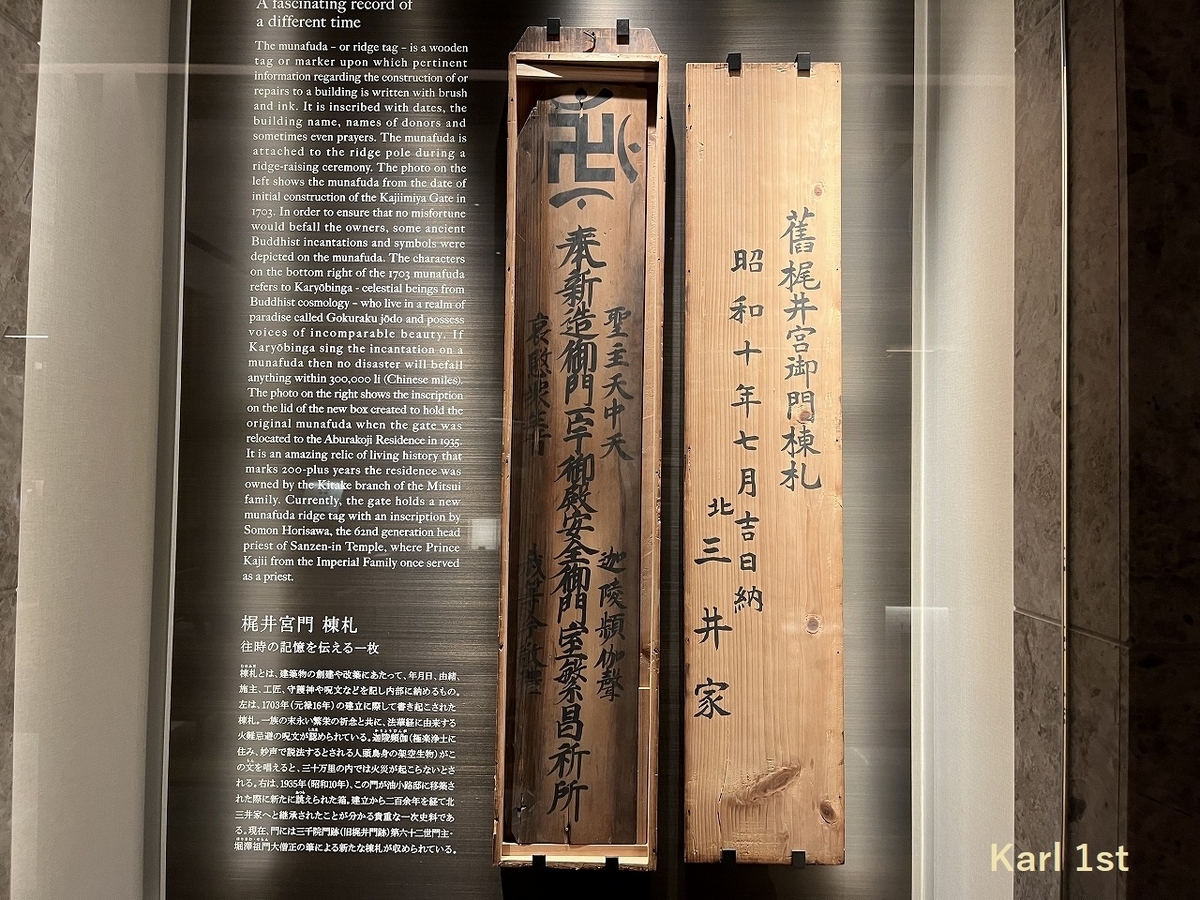 A fascinating record of
a different time
The munafuda – or ridge tag – is a wooden
tag or marker upon which pertinent
information regarding the construction of or
repairs to a building is written with brush
and ink. It is inscribed with dates, the
building name, names of donors and
sometimes even prayers. The munafuda is
attached to the ridge pole during a
ridge-raising ceremony. The photo on the
left shows the munafuda from the date of
initial construction of the Kajiimiya Gate in
1703. In order to ensure that no misfortune
would befall the owners, some ancient
Buddhist incantations and symbols were
depicted on the munafuda. The characters
on the bottom right of the 1703 munafuda
refers to Karyōbinga - celestial beings from
Buddhist cosmology – who live in a realm of
paradise called Gokuraku jōdo and possess
voices of incomparable beauty. If
Karyōbinga sing the incantation on a
munafuda then no disaster will befall
anything within 300,000 li (Chinese miles).
The photo on the right shows the inscription
on the lid of the new box created to hold the
original munafuda when the gate was
relocated to the Aburakoji Residence in 1935.
It is an amazing relic of living history that
marks 200-plus years the residence was
owned by the Kitake branch of the Mitsui
family. Currently, the gate holds a new
munafuda ridge tag with an inscription by
Somon Horisawa, the 62nd generation head
priest of Sanzen-in Temple, where Prince
Kajii from the Imperial Family once served
as a priest.
梶井宮門 棟札
往時の記憶を伝える一枚
棟札とは、建築物の創建や改築にあたって、年月日、由緒、
施主、工匠、守護神や呪文などを記し内部に納めるもの。
左は、1703年(元禄16年)の建立に際して書き起こされた
棟札。一族の末永い繁栄の祈念と共に、法華経に由来する
火難忌避の呪文が認められている。迦陵頻伽(極楽浄土に
住み、妙声で説法するとされる人頭鳥身の架空生物)がこ
の文を唱えると、三十万里の内では火災が起こらないとさ
れる。右は、1935年(昭和10年)、この門が油小路邸に移築さ
れた際に新たに誂えられた箱。建立から二百余年を経て北
三井家へと継承されたことが分かる貴重な一次史料であ
る。現在、門には三千院門跡(旧梶井門跡)第六十二世門主・
堀澤祖門大僧正の筆による新たな棟札が収められている。
聖主天中天
迦陵頻伽聲
奉新造御門
御殿安全御門室繁昌祈所
哀愍衆
舊梶井宮御門棟札
昭和十年七月吉日納
北三井家
Karl 1st